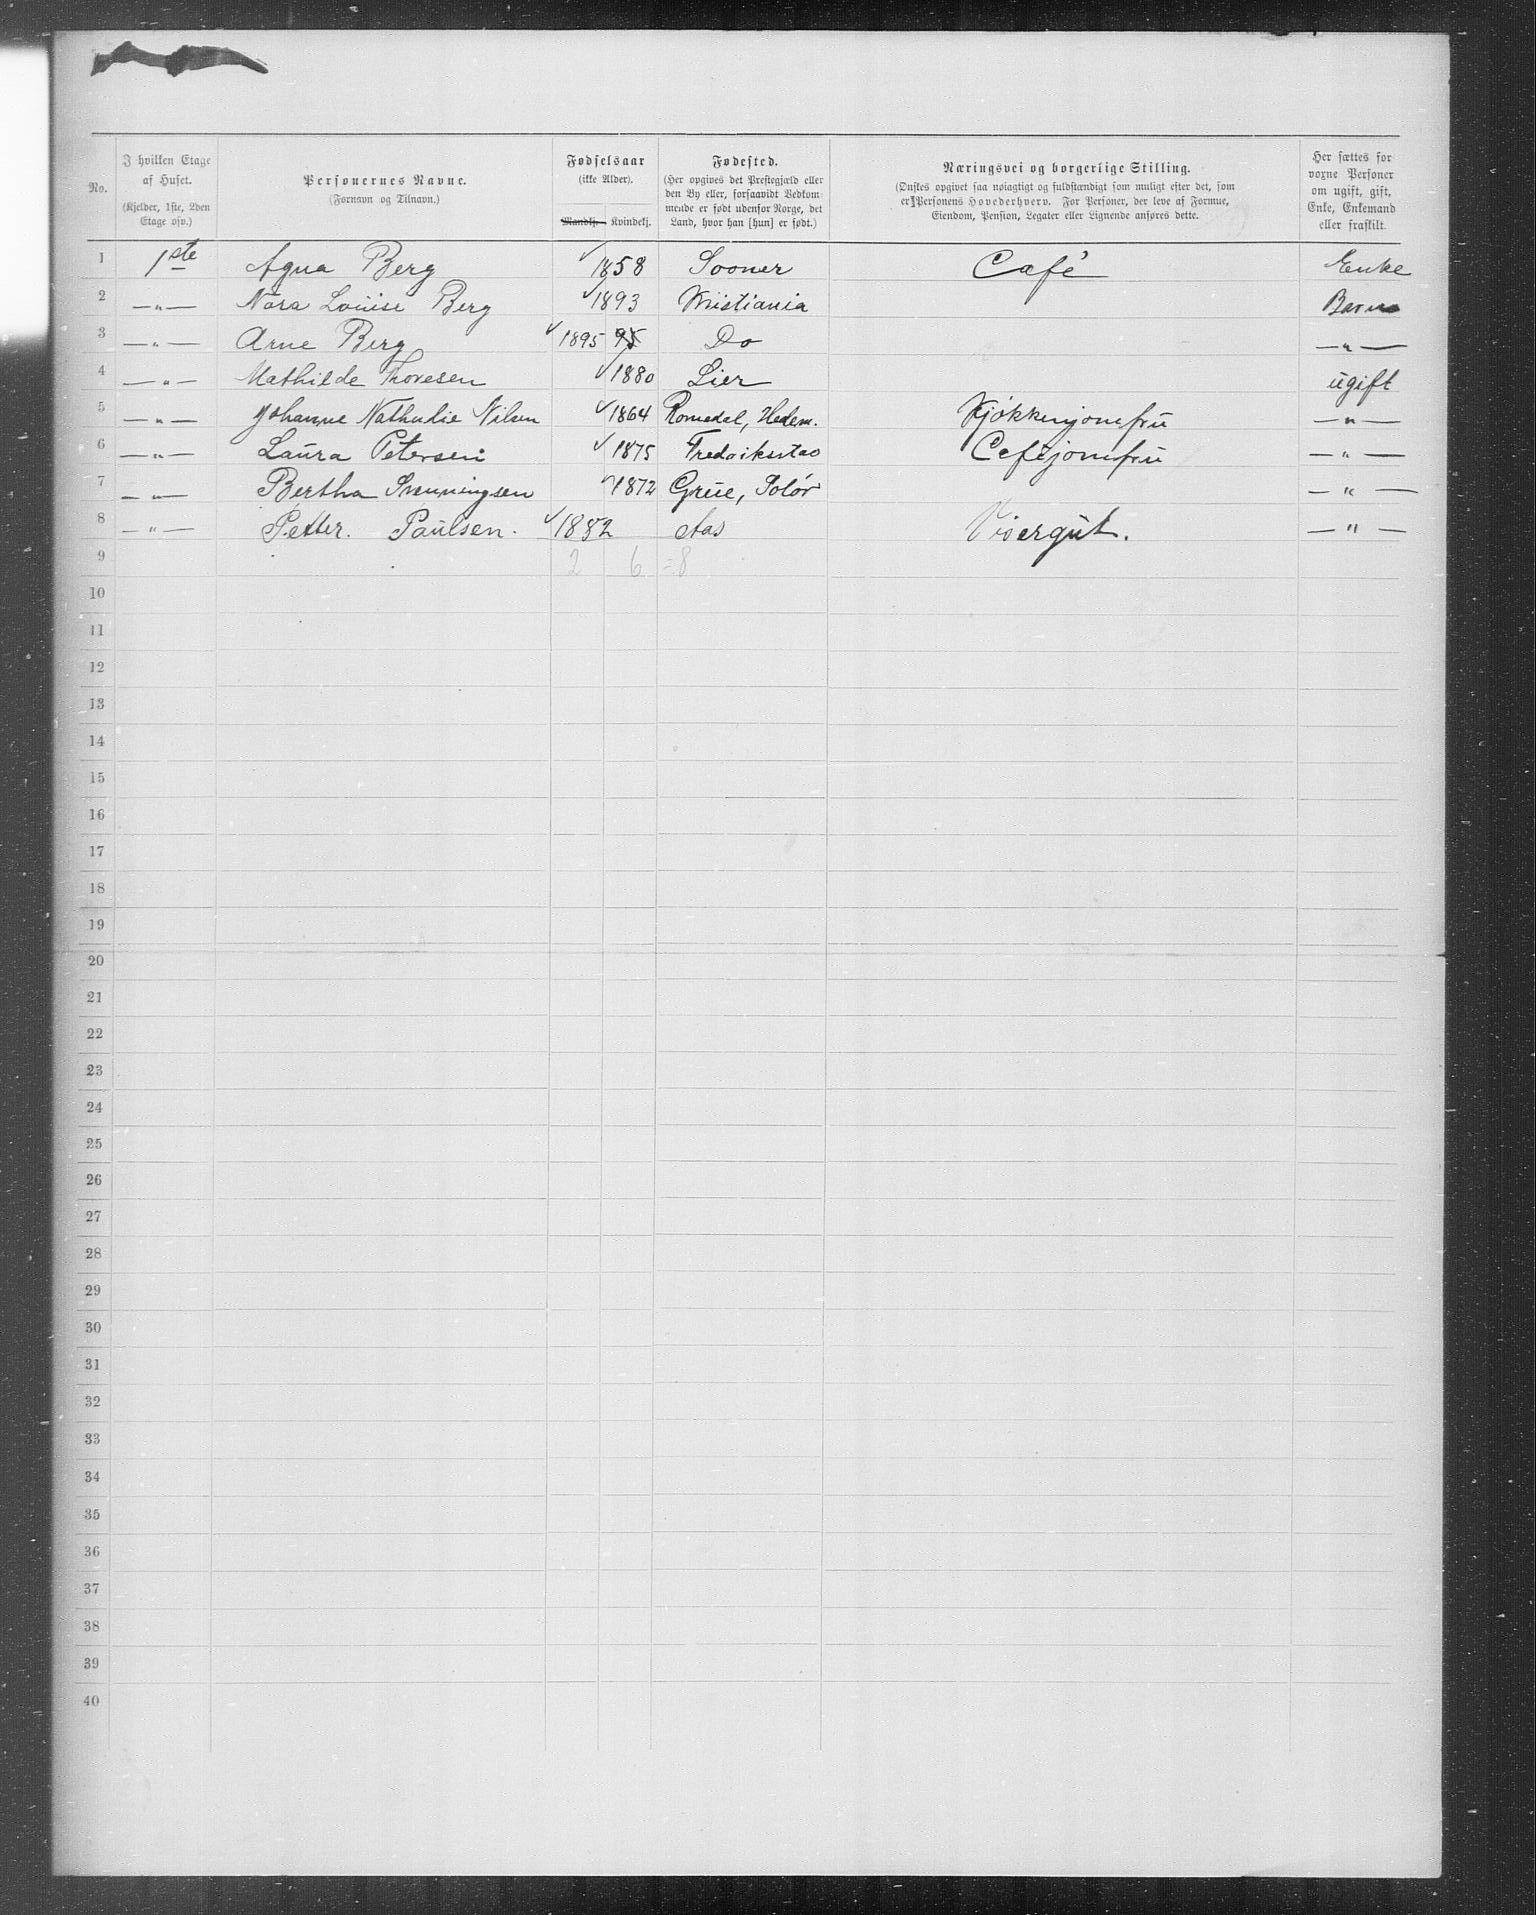 No.
I hvilken Etage af Huset.
(Kjelder, 1ste, 2den Etage osv.)
Personernes Navne.
(Fornavn og Tilnavn.)
Fødselsaar
(ikke Alder).
Mandkj. Kvindekj.
Fødested.
(Her opgives det Prestegjæld eller
den By eller, forsaavidt Vedkom-
mende er født udenfor Norge, det
Land, hvor han [hun] er født.)
Næringsvei og borgerlige Stilling.
(Ønskes opgivet saa nøiagtigt og fuldstændigt som muligt efter det, som
er Personens Hovederhverv. For Personer, der leve af Formue,
Eiendom, Pension, Legater eller Lignende anføres dette.
Her sættes for
voxne Personer
om ugift, gift,
Enke, Enkemand
eller fraskilt.
1 1ste Agna Berg 1858 Sooner Café Enke
2 —„— Nora Louise Berg 1893 Kristiania Barn
3 —„— Arne Berg 1895 95 Do —„—
4 —„— Mathilde Thoresen 1880 Lier ugift
5 —„— Johanne Nathalie Nilsen 1864 Romedal, Hedem. Kjøkkenjomfru —„—
6 —„— Laura Petersen 1875 Fredriksstad Cafejomfru —„—
7 —„— Bertha Svenningsen 1872 Grue, Solør —„—
8 —„— Petter. Paulsen. 1882 Aas Visergut. —„—
9 2 6 =8
10
11
12
13
14
15
16
17
18
19
20
21
22
23
24
25
26
27
28
29
30
31
32
33
34
35
36
37
38
39
40